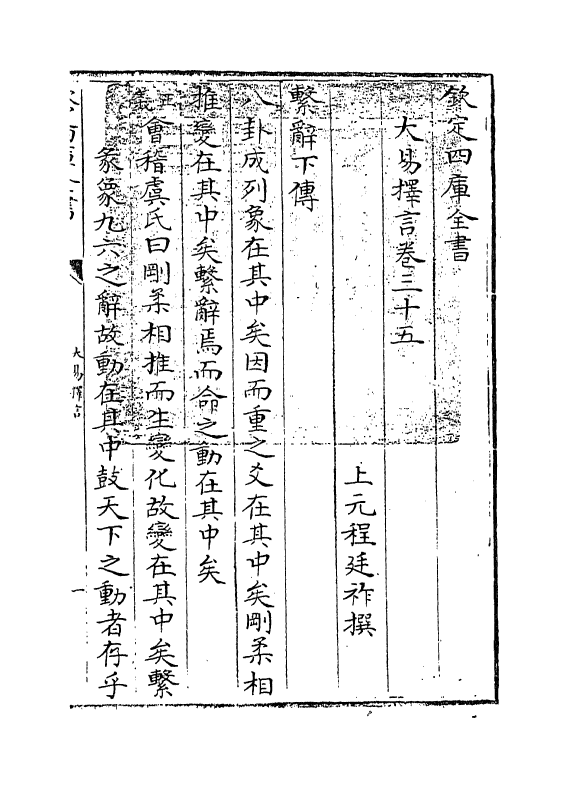 欽定四庫全書
大易擇言卷三十五
上元程廷祚撰
繫辭下傳
八卦成列象在其中矣因而重之爻在其中矣剛柔相
推變在其中矣繫辭焉而命之動在其中矣
正義
會稽虞氏曰剛柔相推而生變化故變在其中矣繫
彖象九六之辭故動在其中鼓天下之動者存乎
大易擇言
一